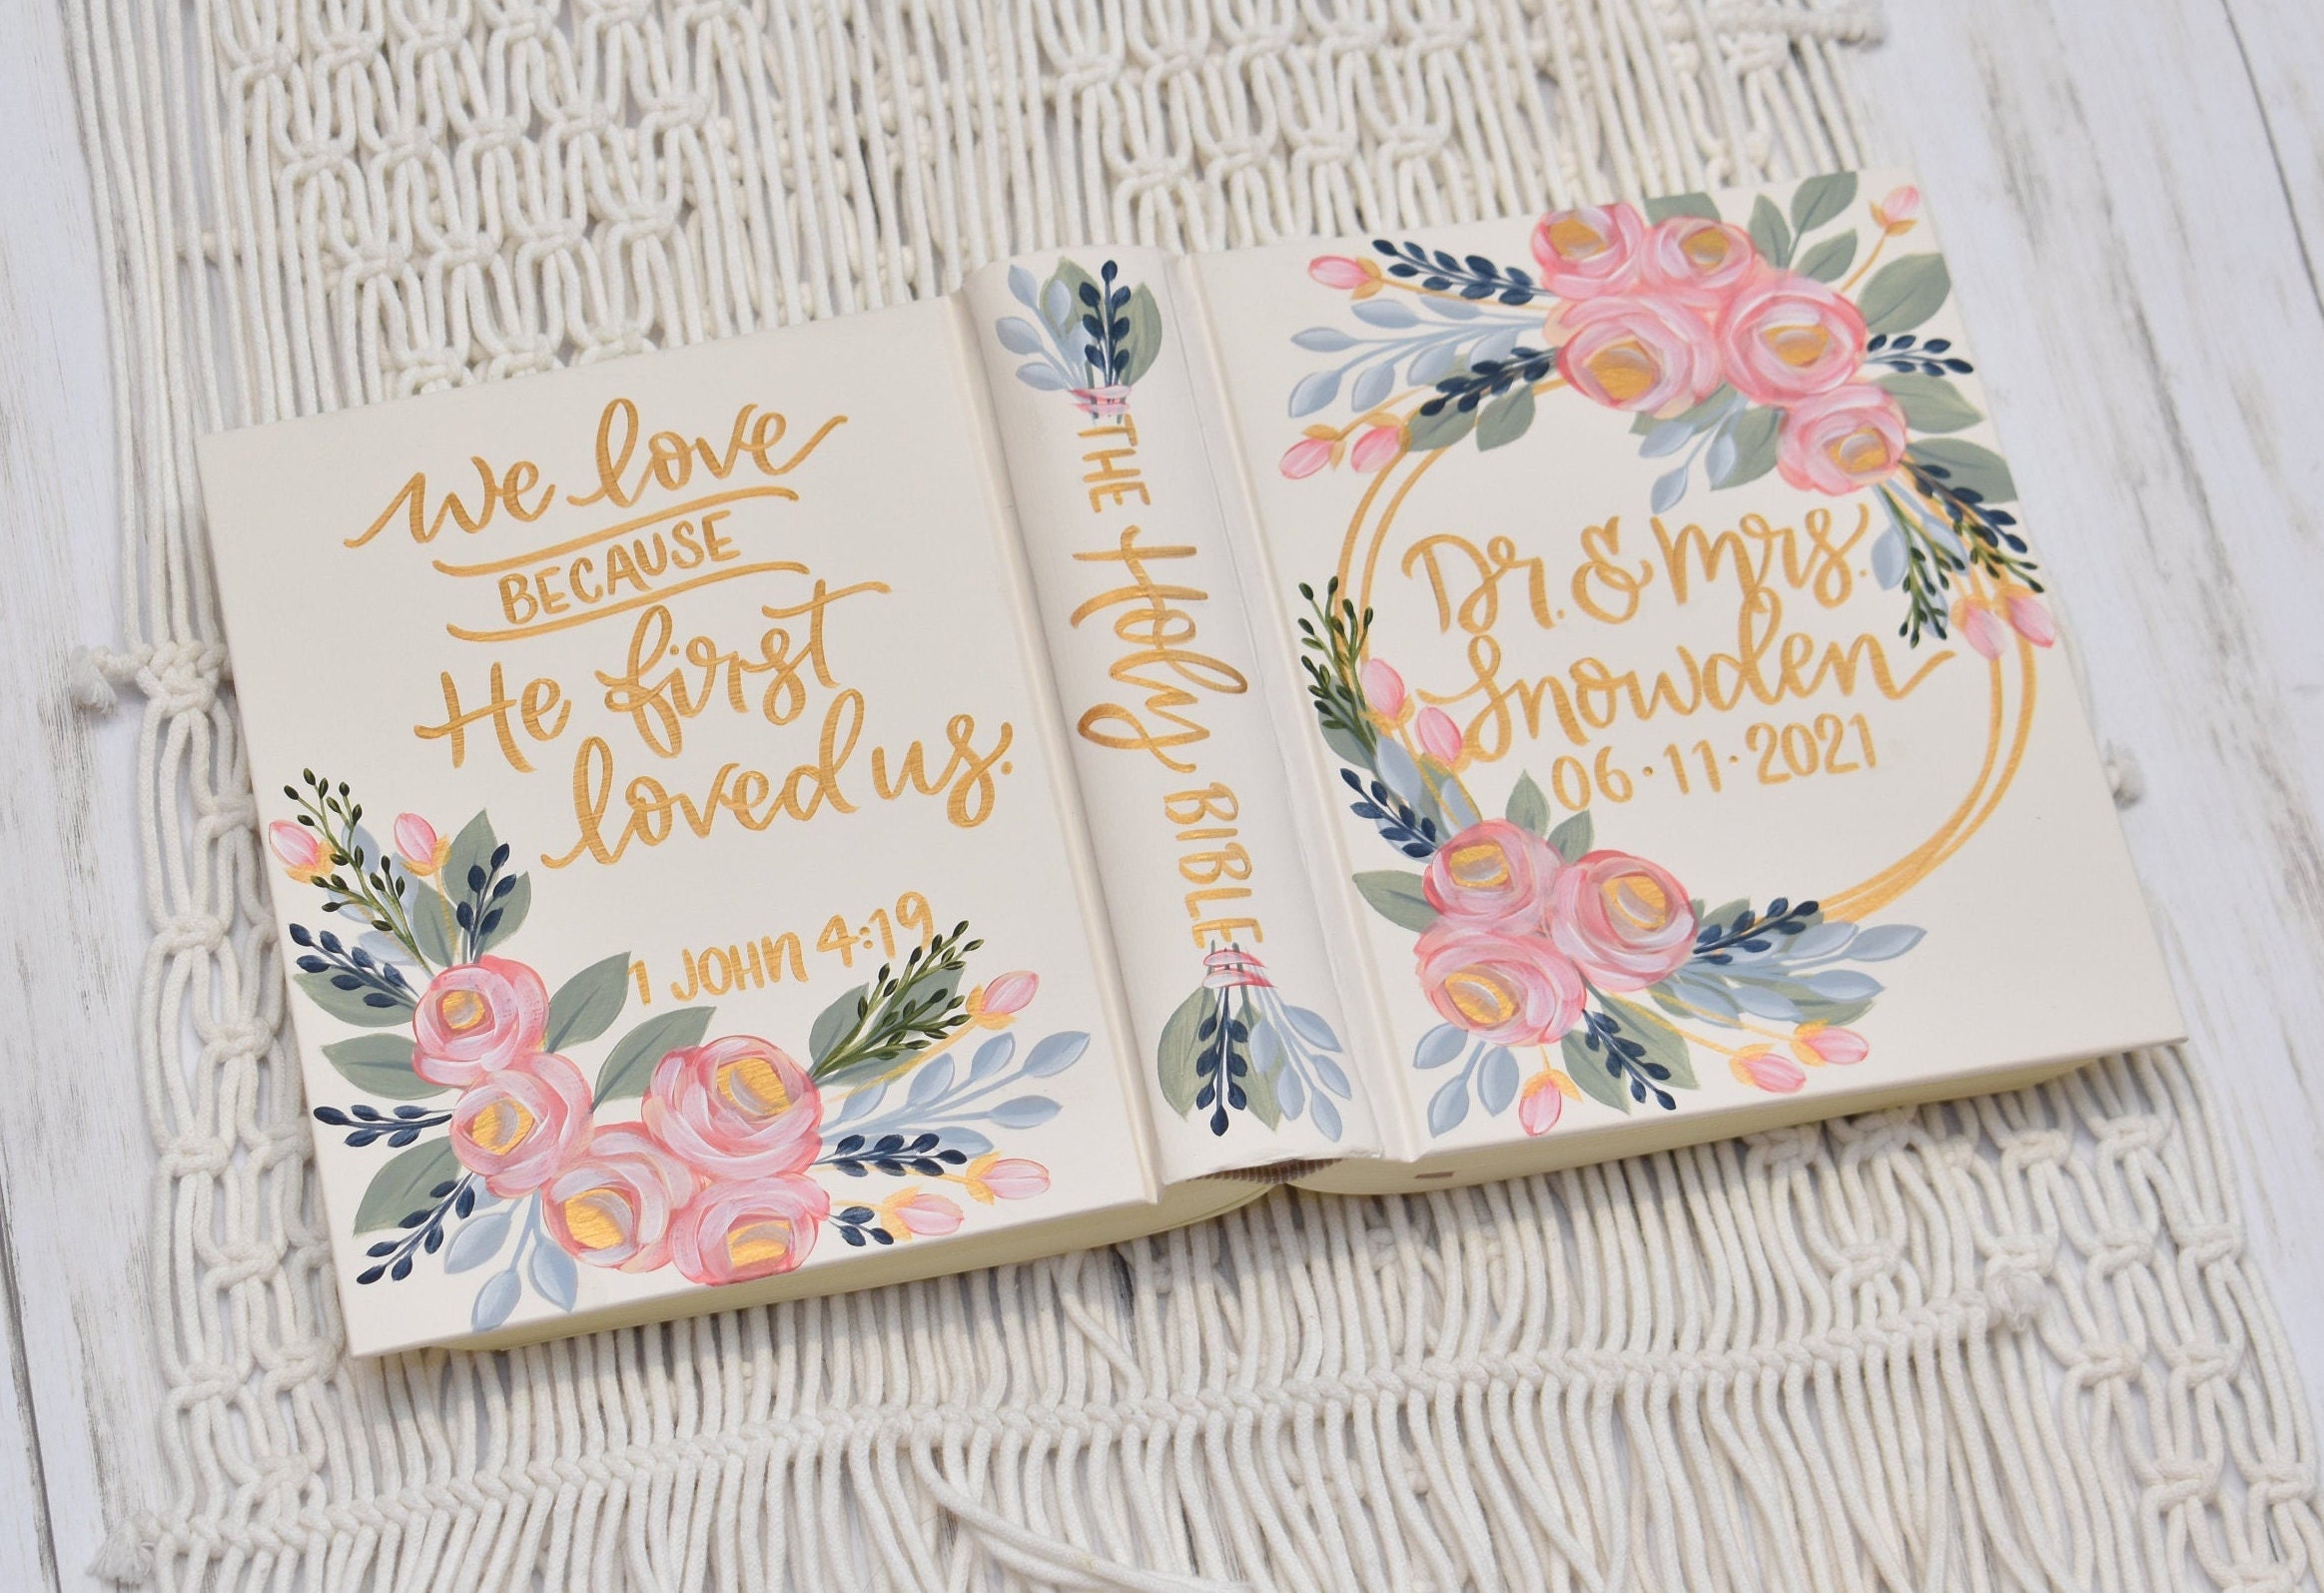 We love
BECAUSE
He first
loved us.
1 JOHN 4:19
THE Holy BIBLE
Dr. & Mrs.
Snowden
06·11·2021